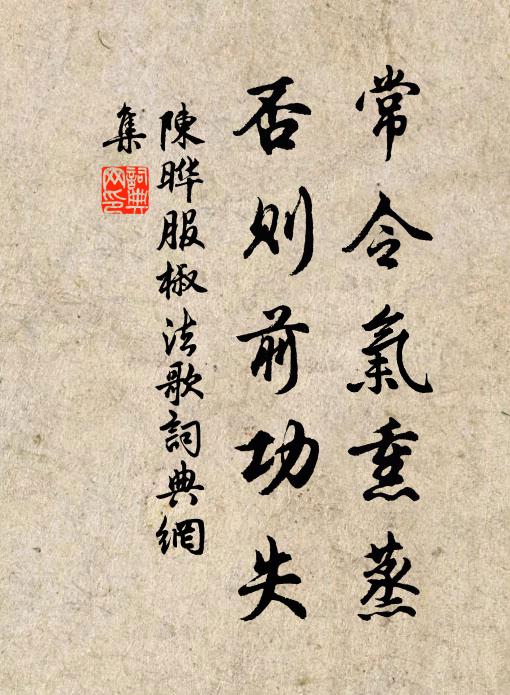 常令氣熏蒸
否則前功失
陳曄服椒法歌詞典網
集
詞典
网印